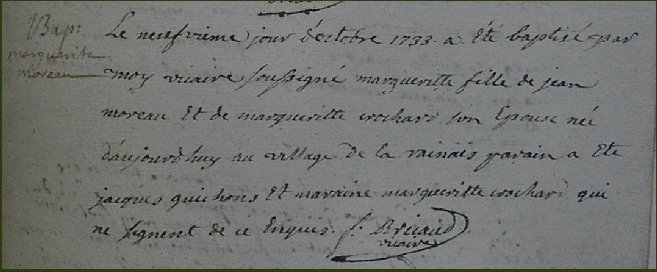 Bap:
marguerite
moreau
Le neufvieme jour d'octobre 1733 a Eté baptisé par
moy vicaire soussigné margueritte fille de jean
moreau Et de margueritte crochard son Epouse né
d'aujourdhuy au village de la rainais parain a Ete
jacques guichons Et maraine margueritte crochard qui
ne signent de ce Enquis. f. Briand
vicaire